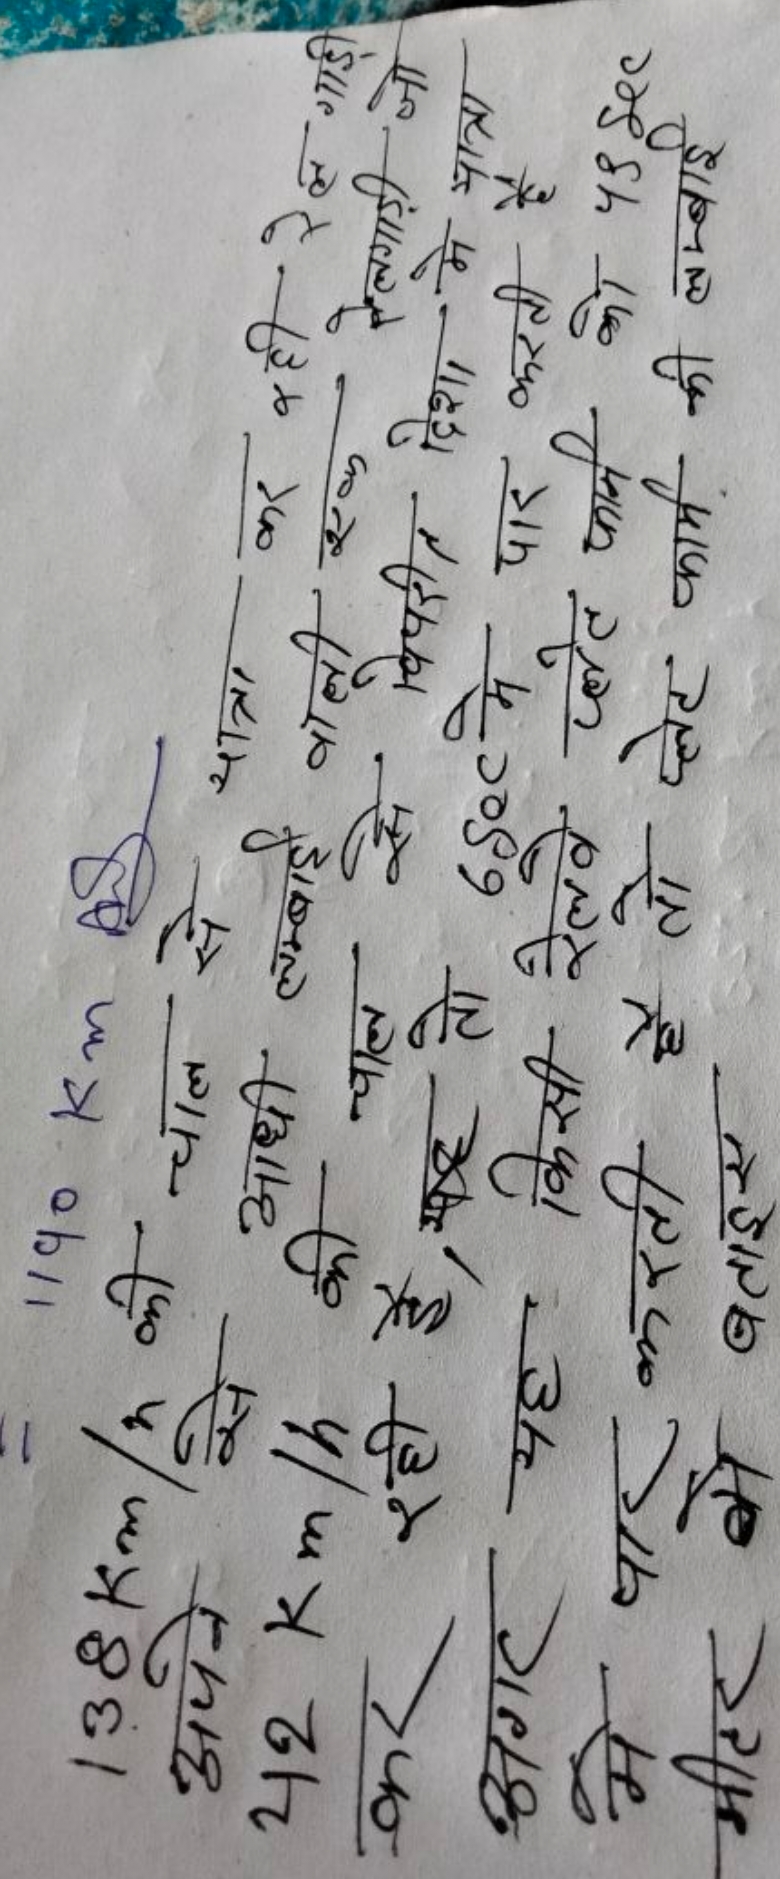 = 1190 Km Ans
138 Km/h की चाल से यात्रा कर रही रेलगाड़ी
अपने से आधी लम्बाई वाली एक रेलगाड़ी जो
42 Km/h की चाल से विपरीत दिशा में यात्रा
कर रही है, तो 9 Sec में पार करती है
अगर उस किसी रेलवे प्लेट फार्म को 45 Sec
में पार करती है तो प्लेट फार्म की लम्बाई
मीटर में बताइए